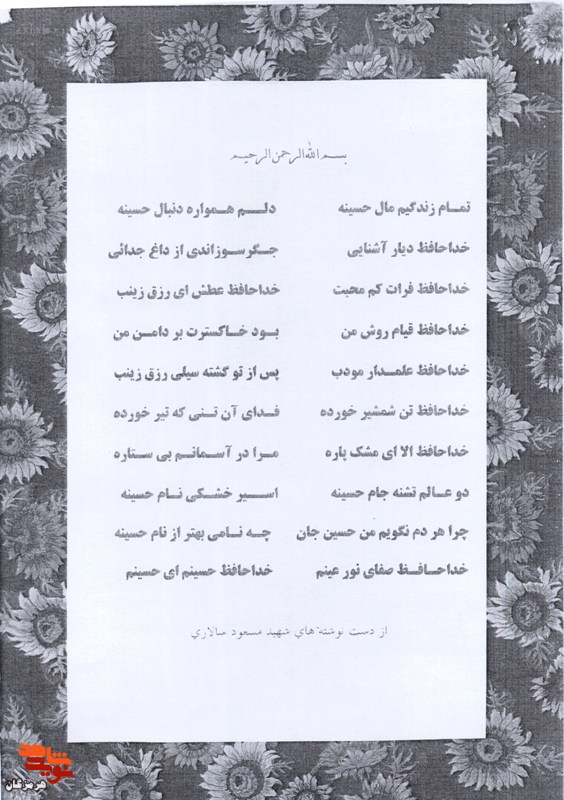 بسم الله الرحمن الرحیم
تمام زندگیم مال حسینه دلم همواره دنبال حسینه
خداحافظ دیار آشنایی جگرسوزاندی از داغ جدائی
خداحافظ فرات کم محبت خداحافظ عطش ای رزق زینب
خداحافظ قیام روش من بود خاکسترت بر دامن من
خداحافظ علمدار مودب پس از تو گشته سیلی رزق زینب
خداحافظ تن شمشیر خورده فدای آن تنی که تیر خورده
خداحافظ الا ای مشک پاره مرا در آسمانم بی ستاره
دو عالم تشنه جام حسینه اسیر خشکی نام حسینه
چرا هر دم نگویم من حسین جان چه نامی بهتر از نام حسینه
خداحافظ صفای نور عینم خداحافظ حسینم ای حسینم
از دست نوشته هاي شهید مسعود سالاري
نوید شاهد
هرمزگان